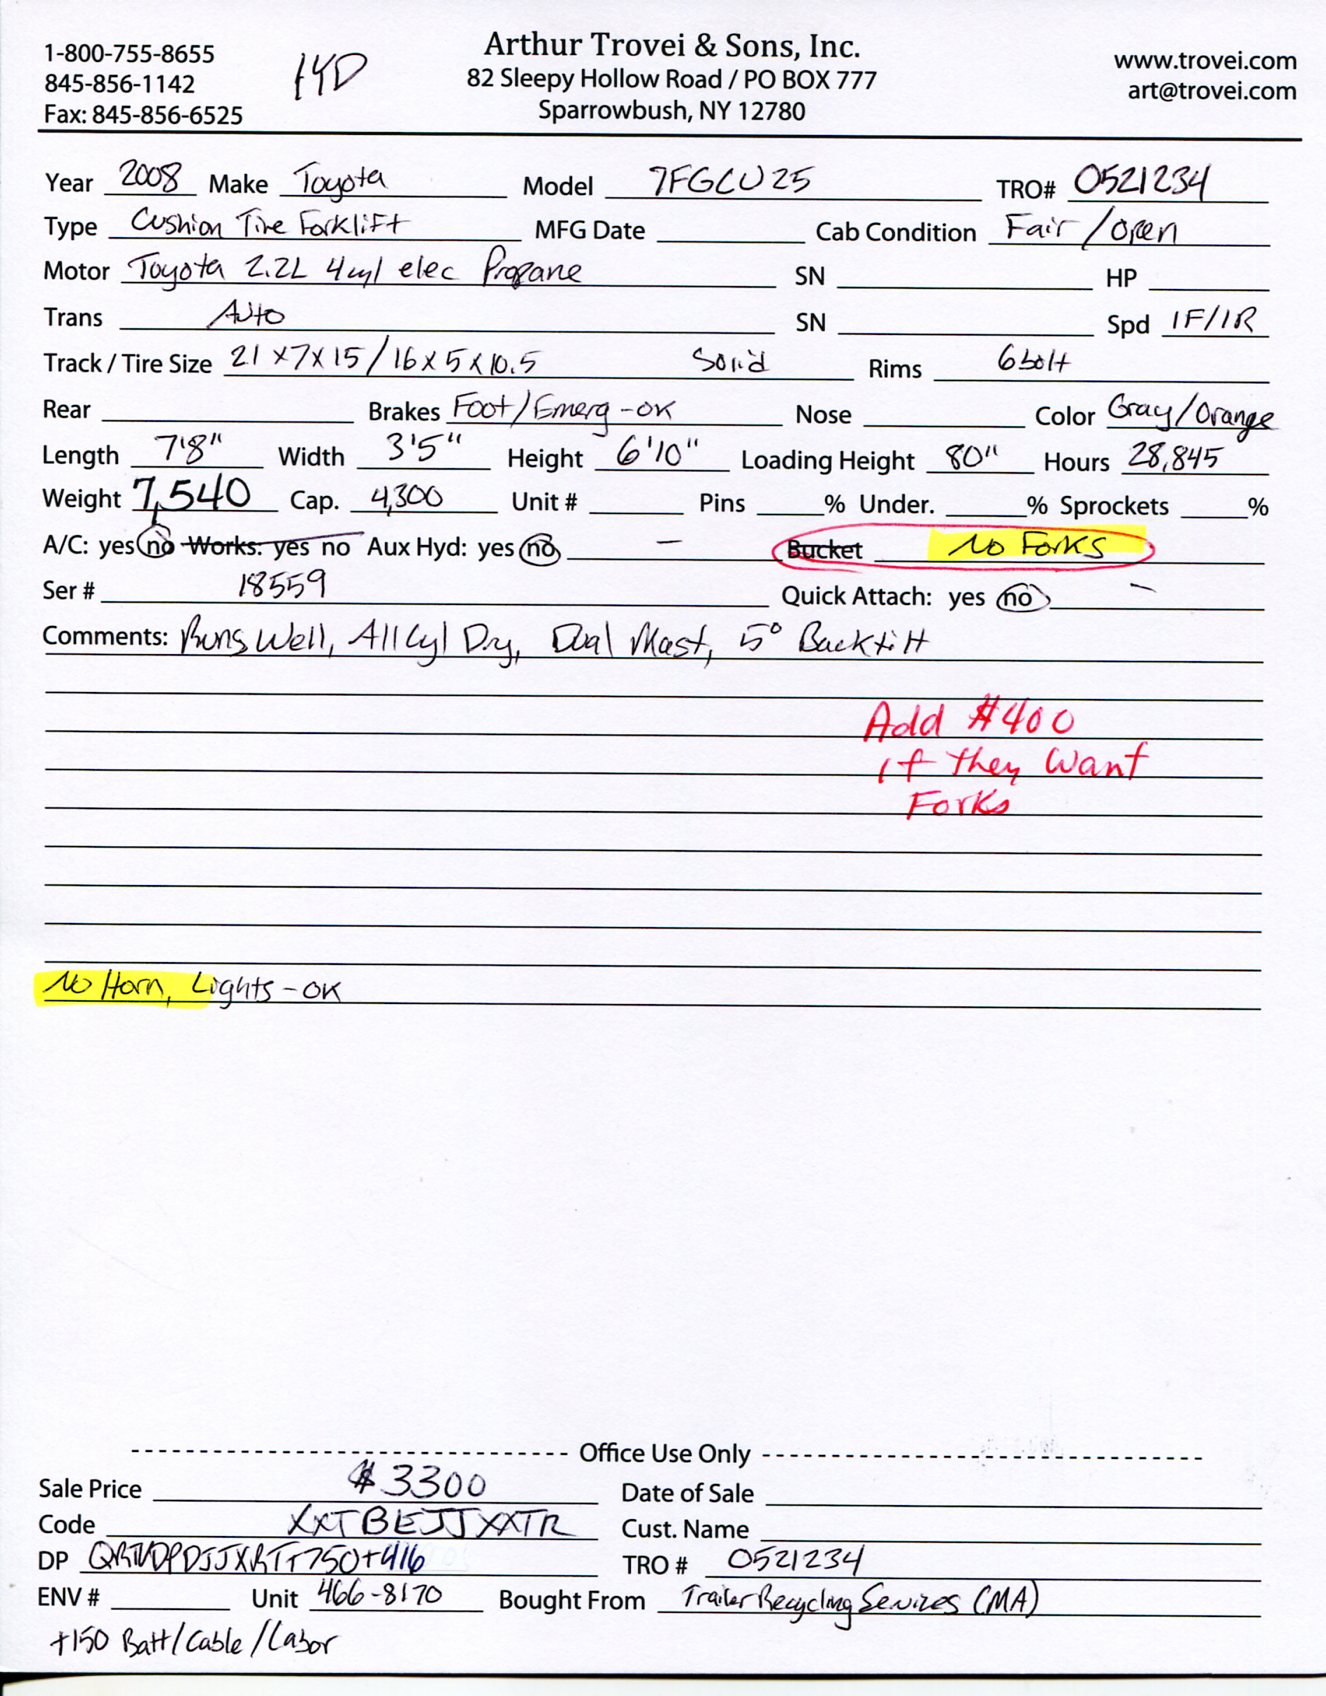 1-800-755-8655
845-856-1142
Fax: 845-856-6525
HYD
Arthur Trovei & Sons, Inc.
82 Sleepy Hollow Road / PO BOX 777
Sparrowbush, NY 12780
www.trovei.com
art@trovei.com
Year 2008 Make Toyota Model 7FGCU25 TRO# 0521234
Type Cushion Tire Forklift MFG Date Cab Condition Fair / Open
Motor Toyota 2.2L 4cyl elec Propane SN HP
Trans Auto SN Spd 1F/1R
Track / Tire Size 21x7x15 / 16x5x10.5 Solid Rims 6 bolt
Rear Brakes Foot/Emerg-OK Nose Color Gray/Orange
Length 7'8" Width 3'5" Height 6'10" Loading Height 80" Hours 28,845
Weight 7,540 Cap. 4,300 Unit # Pins % Under. % Sprockets %
A/C: yes no Works: yes no Aux Hyd: yes no — Bucket No Forks
Ser # 18559 Quick Attach: yes no —
Comments: Runs Well, All Cyl Dry, Dual Mast, 5° Backtilt
Add $400
if they want
Forks
No Horn, Lights-OK
Office Use Only
Sale Price $3300 Date of Sale
Code XXTBEJJXXTR Cust. Name
DP TRO # 0521234
ENV # Unit 466-8170 Bought From Trailer Recycling Services (MA)
+150 Batt/Cable/Labor